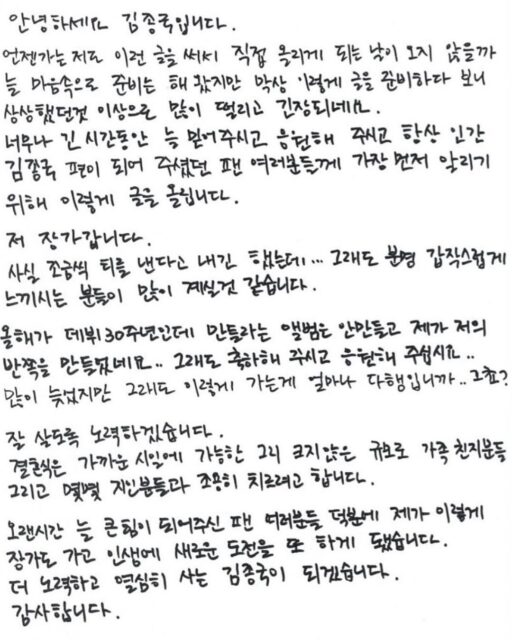 안녕하세요 김종국입니다.
언젠가는 저도 이런 글을 써서 직접 올리게 되는 날이 오지 않을까
늘 마음속으로 준비는 해 봤지만 막상 이렇게 글을 준비하다 보니
상상했던것 이상으로 많이 떨리고 긴장되네요.
너무나 긴 시간동안 늘 믿어주시고 응원해 주시고 항상 인간
김종국 편이 되어 주셨던 팬 여러분들께 가장 먼저 알리기
위해 이렇게 글을 올립니다.
저 장가갑니다.
사실 조금씩 티를 낸다고 내긴 했는데... 그래도 분명 갑작스럽게
느끼시는 분들이 많이 계실것 같습니다.
올해가 데뷔 30주년인데 만들라는 앨범은 안만들고 제가 저의
반쪽을 만들었네요.. 그래도 축하해 주시고 응원해 주십시요..
많이 늦었지만 그래도 이렇게 가는게 얼마나 다행입니까.. 그쵸?
잘 살도록 노력하겠습니다.
결혼식은 가까운 시일에 가능한 그리 크지않은 규모로 가족 친지분들
그리고 몇몇 지인분들과 조용히 치르려고 합니다.
오랜시간 늘 큰힘이 되어주신 팬 여러분들 덕분에 제가 이렇게
장가도 가고 인생에 새로운 도전을 또 하게 됐습니다.
더 노력하고 열심히 사는 김종국이 되겠습니다.
감사합니다.